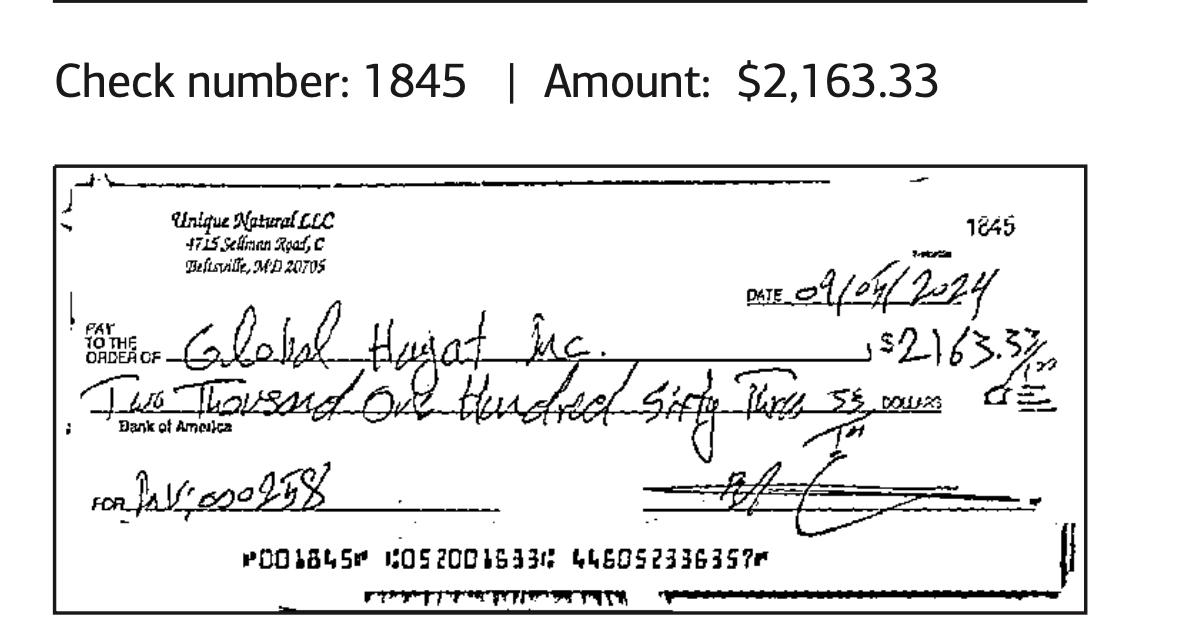 Check number: 1845 | Amount: $2,163.33
Unique Natural LLC
4715 Sellman Road, C
Beltsville, MD 20705
1845
DATE 09/04/2024
PAY TO THE ORDER OF Global Hayat Inc. $2163.33/100
Two Thousand One Hundred Sixty Three 33/100 DOLLARS
Bank of America
FOR INV:000258
⑈001845⑈ ⑆052001633⑆ 446052336357⑈